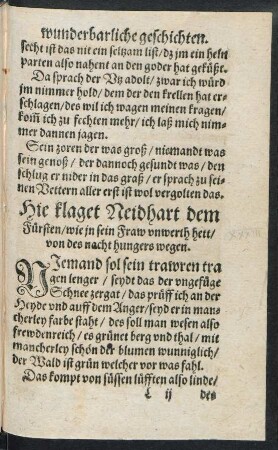 wunderbarliche geschichten.
secht ist das nit ein seltzam list / dz jm ein helm
parten also nahent an den goder hat geküßt.
Da sprach der Vy adolt / zwar ich würd
jm nimmer hold / dem der den krellen hat er⸗
schlagen / des wil ich wagen meinen kragen /
kom̃ ich zu fechten mehr / ich laß mich nim⸗
mer dannen jagen.
Sein zoren der was groß / niemandt was
sein genoß / der dannoch gesundt was / den
schlug er nider in das graß / er sprach zu sei⸗
nen Vettern aller erst ist wol vergolten das.
Hie klaget Neidhart dem
Fürsten / wie jn sein Fraw vnwerth hett /
von des nacht hungers wegen.
NJemand sol sein trawren tra
gen lenger / seydt das der vngefüge
Schnee zergat / das prüff ich an der
Heyde vnd auff dem Anger / seyd er in man⸗
cherley farbe staht / des soll man wesen also
frewdenreich / es grünet berg vnd thal / mit
mancherley schön der blumen wunniglich /
der Wald ist grün welcher vor was fahl.
Das kompt von süssen lüfften also linde /
L ij des